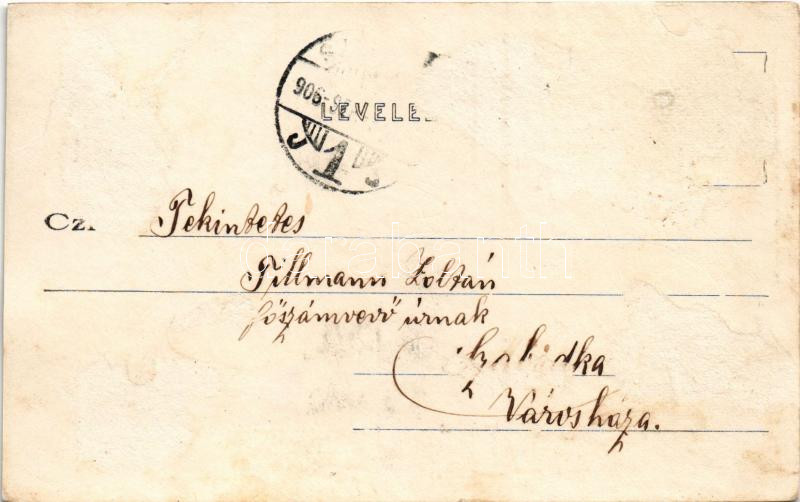 906
LEVELE
Cz. Tekintetes
Tillmann Zoltán
főszámvevő úrnak
Szabadka
Városháza.